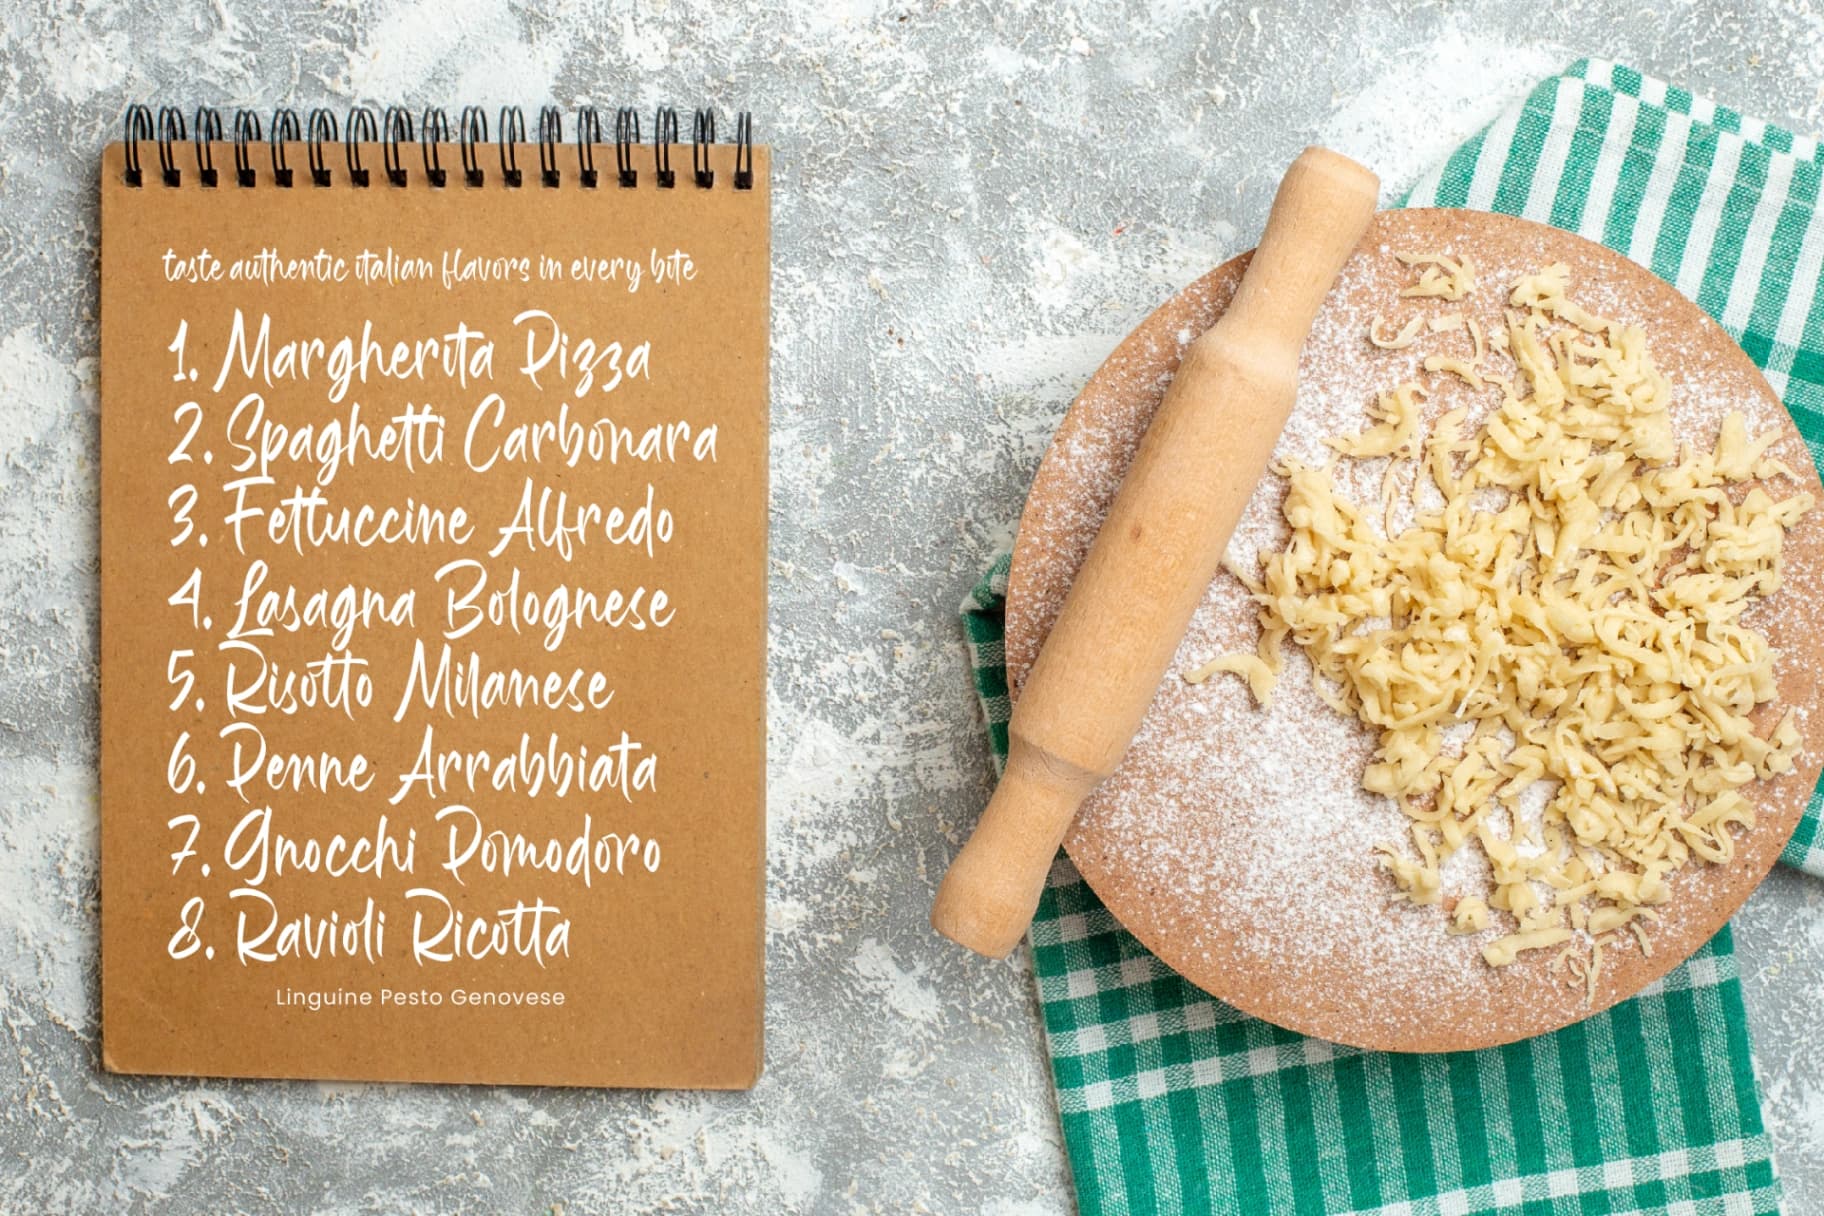 taste authentic italian flavors in every bite
1. Margherita Pizza
2. Spaghetti Carbonara
3. Fettuccine Alfredo
4. Lasagna Bolognese
5. Risotto Milanese
6. Penne Arrabbiata
7. Gnocchi Pomodoro
8. Ravioli Ricotta
Linguine Pesto Genovese